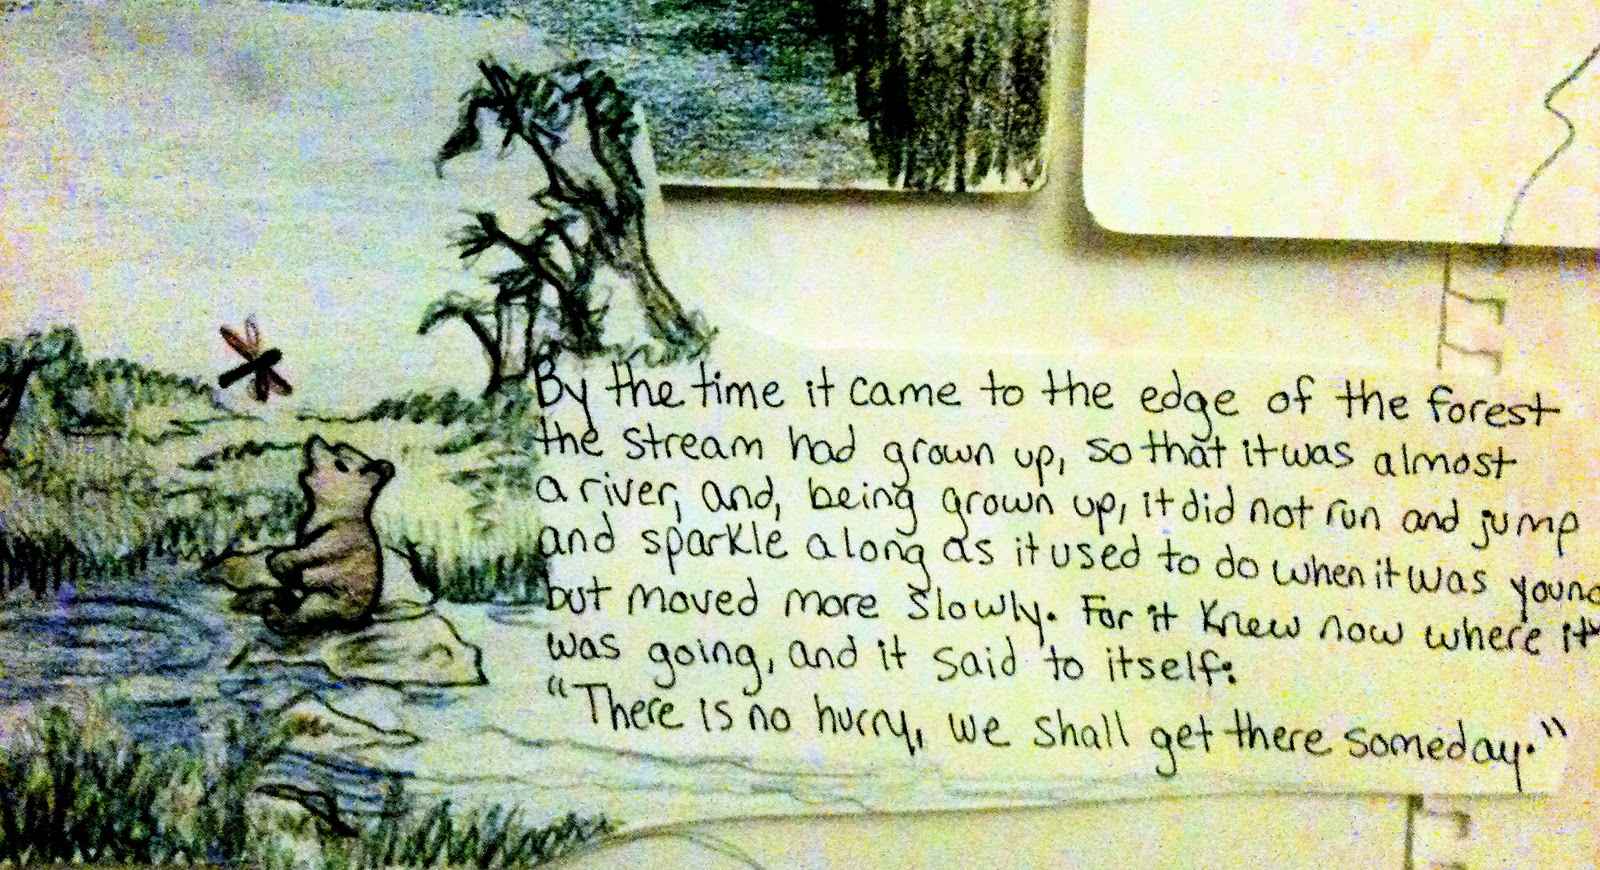 By the time it came to the edge of the forest
the stream had grown up, so that it was almost
a river, and, being grown up, it did not run and jump
and sparkle along as it used to do when it was young
but moved more slowly. For it knew now where it
was going, and it said to itself:
"There is no hurry, we shall get there someday."